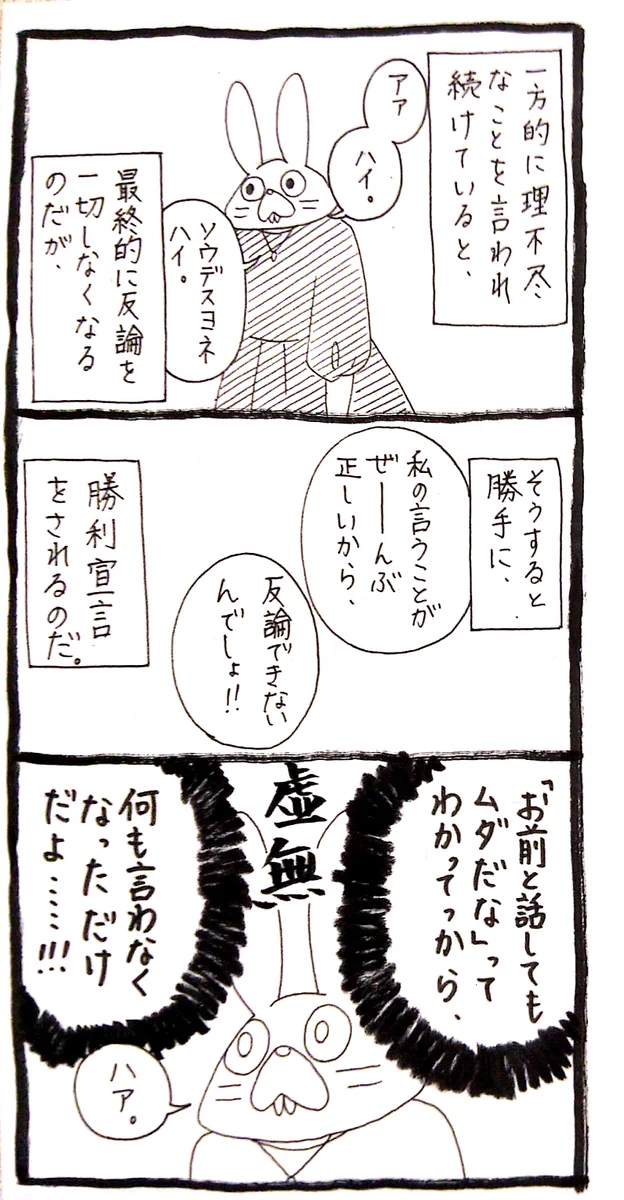 一方的に理不尽
なことを言われ
続けていると、
アァ
ハイ。
ソウデスヨネ
ハイ。
最終的に反論を
一切しなくなる
のだが、
そうすると
勝手に、
私の言うことが
ぜーーんぶ
正しいから、
反論できない
んでしょ!!
勝利宣言
をされるのだ。
「お前と話しても
ムダだな」って
わかってっから、
虚無
何も言わなく
なっただけ
だよ……!!!
ハァ。